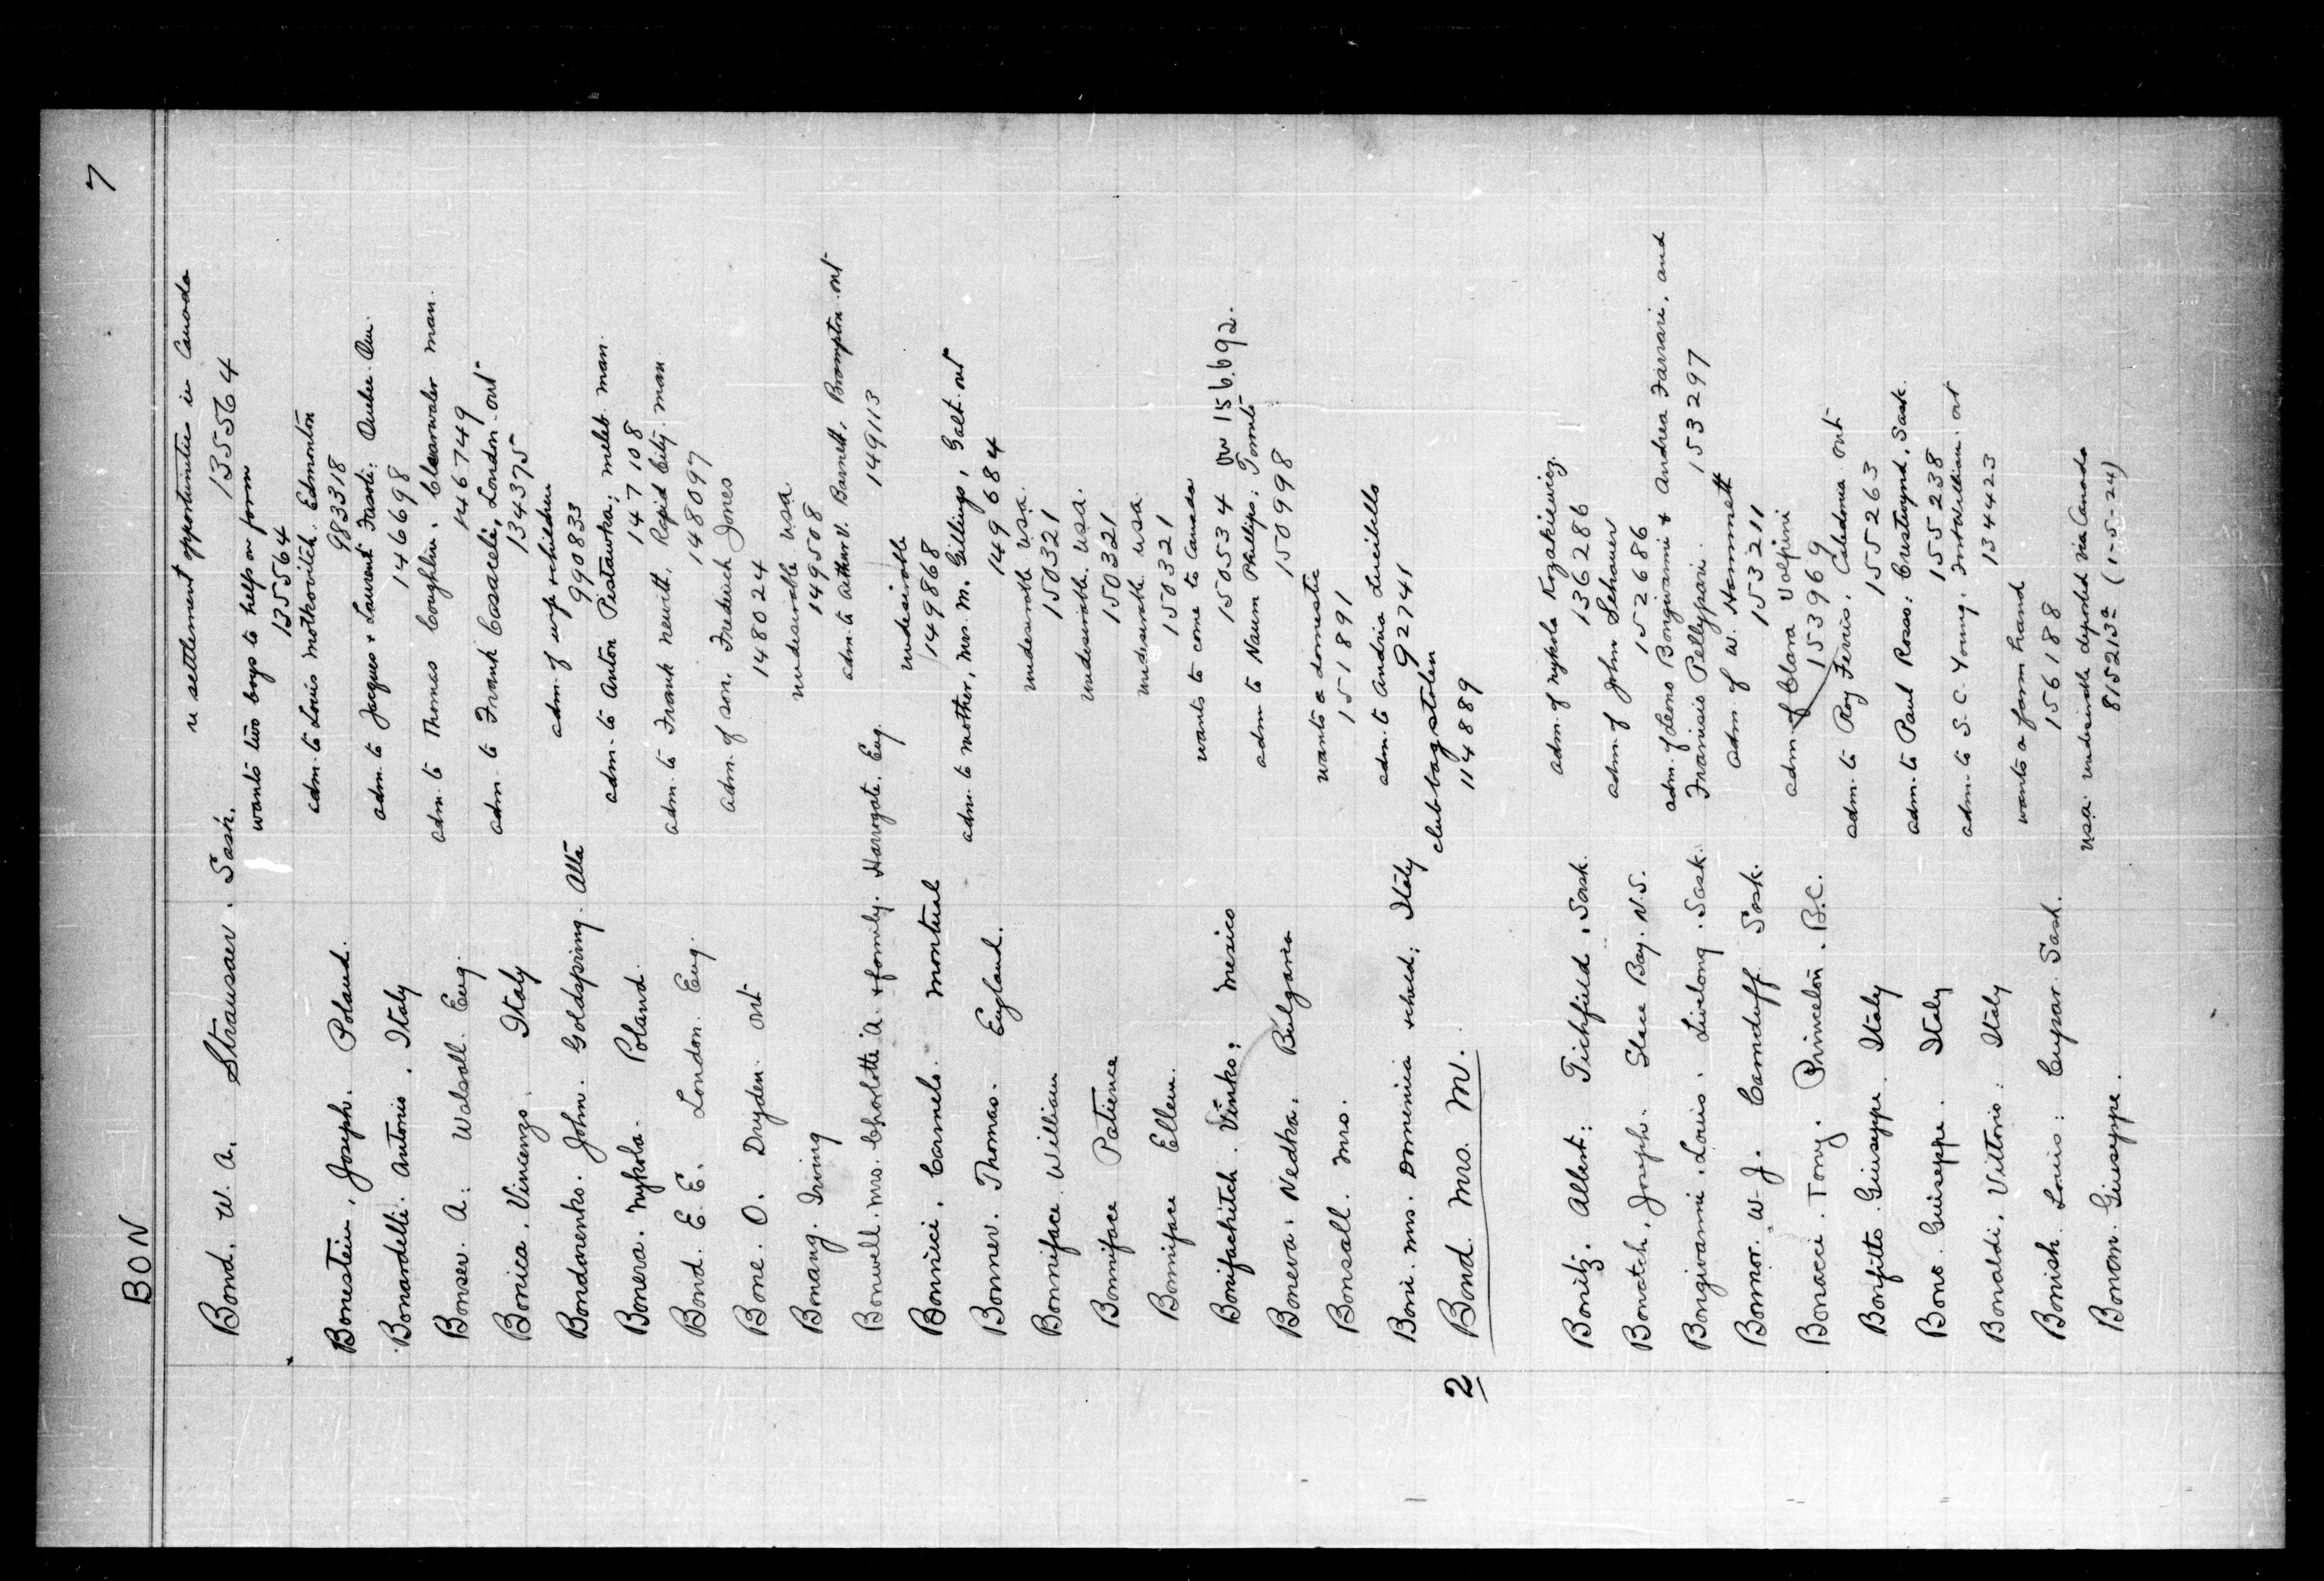 BON
7
Bond. W. A. Strausaer. Sask.
re settlement opportunities in Canada
135564
wants two boys to help on farm
135564
Bonestein, Joseph. Poland.
adm. to Louis Motkovitch. Edmonton
983318
Bonardelli. Antonio. Italy
adm. to Jacques & Laurent Fasoli: Quebec. Qu.
146698
Bonser. A: Walsall. Eng.
adm. to Thomas Coughlin. Clearwater man.
146749
Bonica. Vincenzo. Italy
adm. to Frank Casaceli, London. ont
134375
Bondarenko. John. Goldspring. Alta
adm. of wife & children
990833
Bonera. Mykola. Poland.
adm. to Anton Piatawka; Meleb man.
147108
Bond. E. E. London. Eng.
adm. to Frank Newitt. Rapid City. man
148097
Bone. O. Dryden. ont
adm. of son. Frederich Jones
148024
Bonang. Irving
undesirable usa.
149508
Bonwell. Mrs. Charlotte A. & family. Harrogate. Eng.
adm. to Arthur V. Barnett. Brampton. ont
149113
Bonnici. Carmelo. Montreal
undesirable
149868
Bonner. Thomas. England.
adm. to mother, Mrs. M. Gillings, Galt. ont
149684
Bonniface. William
undesirable usa.
150321
Bonniface Patience
undesirable. usa.
150321
Bonniface Ellen.
undesirable usa.
150321
Bonifachitch. Vinko; Mexico
wants to come to Canada
150534 or 156.692.
Boneva. Nedka. Bulgaria
adm to Naum Phillips; Toronto
150998
Bonsall. Mrs.
wants a domestic
151891
Boni. Mrs. Domenica & child; Italy
adm. to Andria
92741
2 Bond. Mrs. M.
club bag stolen
114889
Bonitz. Albert: Tichfield. Sask.
adm. of Mykola Kozakiewicz.
136286
Bonatch, Joseph. Glace Bay. N.S.
adm. of John Schauer
152686
Bongiovanni. Louis. Livelong. Sask.
adm. of Leono Bongiovanni & Andrea Farrari, and
Franisis Pellypari. 153297
Bonnor. W. J. Carnduff Sask.
adm of W. Hammett
153211
Bonacci. Tony. Princeton. B.C.
adm. of Clara Volpini
153969
Bonfitto. Giuseppe. Italy
adm. to Roy Ferris. Caledonia ont
155263
Bono. Guiseppe. Italy
adm. to Paul Rosso: Crestwynd, Sask.
155238
Bonaldi. Vittorio: Italy
adm. to S. C. Young. Fort William. ont
134423
Bonish. Louis: Cupar. Sask.
wants a farm hand
156188
Bonom. Giuseppe.
usa. undesirable deported via Canada
815213² (1-5-24)